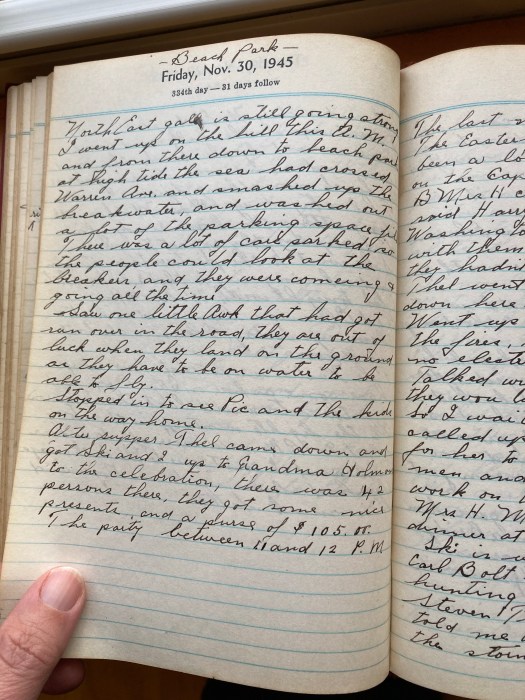 — Beach Park —
Friday, Nov. 30, 1945
334th day — 31 days follow
North East gale is still going strong
I went up on the hill this A. M.
and from there down to beach park
at high tide the sea had crossed
Warren Ave and smashed up the
breakwater, and was hed out
a lot of the parking space
There was a lot of cars parked so
the people could look at the
breakers, and they were comeing &
going all the time
Saw one little Awk that had got
run over in the road, they are out of
luck when they land on the ground
as they have to be on water to be
able to fly.
Stopped in to see Pic and the kids
on the way home.
After supper Thel came down and
got Ski and I up to Grandma Holmes
to the celebration, there was 42
persons there, they got some nice
presents and a purse of $105.00.
The party between 11 and 12 P. M
The last
The Easter
been a
on the Cap
B Mrs H
said Harr
Washing
with them
they hadn
Thel went
down here
Went ups
the fires,
no elect
Talked w
they wou
So I wai
called up
for her to
men and
work on
Mrs H. W
dinner at
Ski is
Carl Bolt
hunting
Steven
told me
the storm